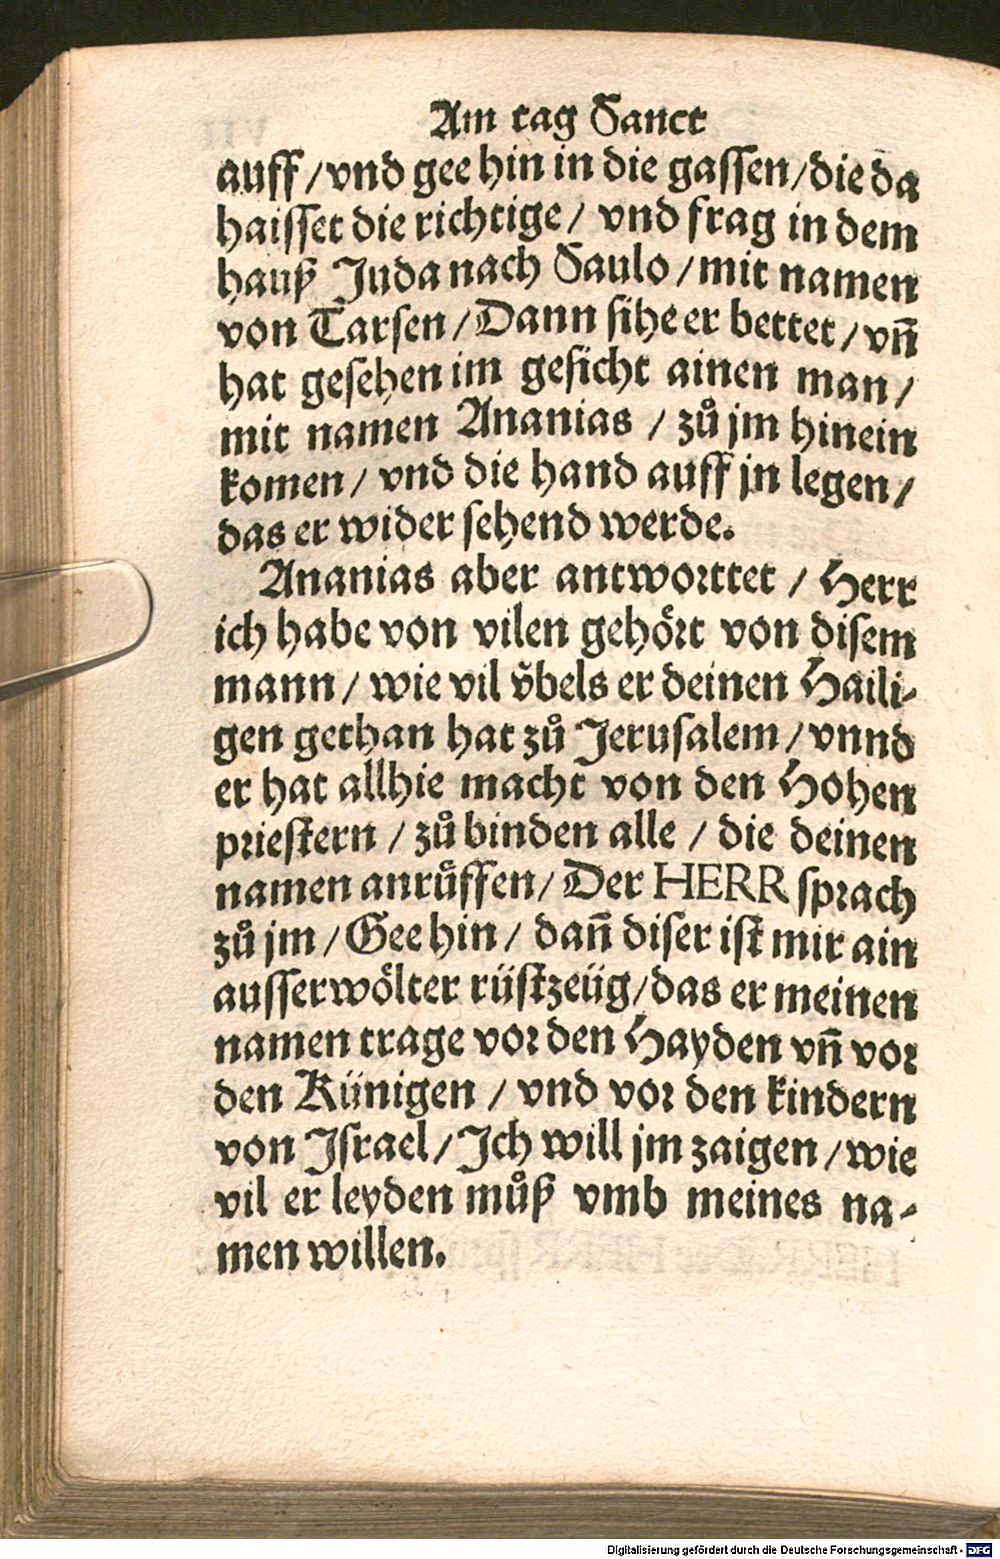 Am tag Sanct
auff / vnd gee hin in die gassen / die da
haisset die richtige / vnd frag in dem
hauß Juda nach Saulo / mit namen
von Tarsen / Dann sihe er bettet / vñ
hat gesehen im gesicht ainen man /
mit namen Ananias / zů jm hinein
komen / vnd die hand auff jn legen /
das er wider sehend werde.
Ananias aber antworttet / Herr
ich habe von vilen gehoͤrt von disem
mann / wie vil v̈bels er deinen Haili-
gen gethan hat zů Jerusalem / vnnd
er hat allhie macht von den Hohen
priestern / zů binden alle / die deinen
namen anruͤffen / Der HERR sprach
zů jm / Gee hin / dañ diser ist mir ain
ausserwoͤlter rüstzeüg / das er meinen
namen trage vor den Hayden vñ vor
den Künigen / vnd vor den kindern
von Israel / Ich will jm zaigen / wie
vil er leyden můß vmb meines na-
men willen.
Digitalisierung gefördert durch die Deutsche Forschungsgemeinschaft - DFG